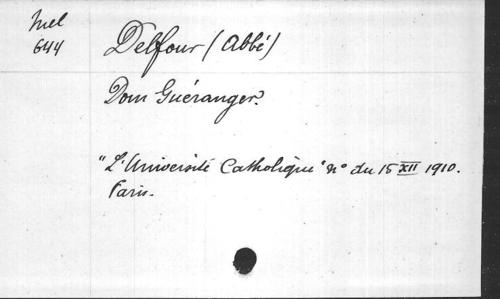 Mel
644
Delfour (Abbé)
Dom Guéranger.
"L'Université Catholique" no du 15 XII 1910.
Paris.